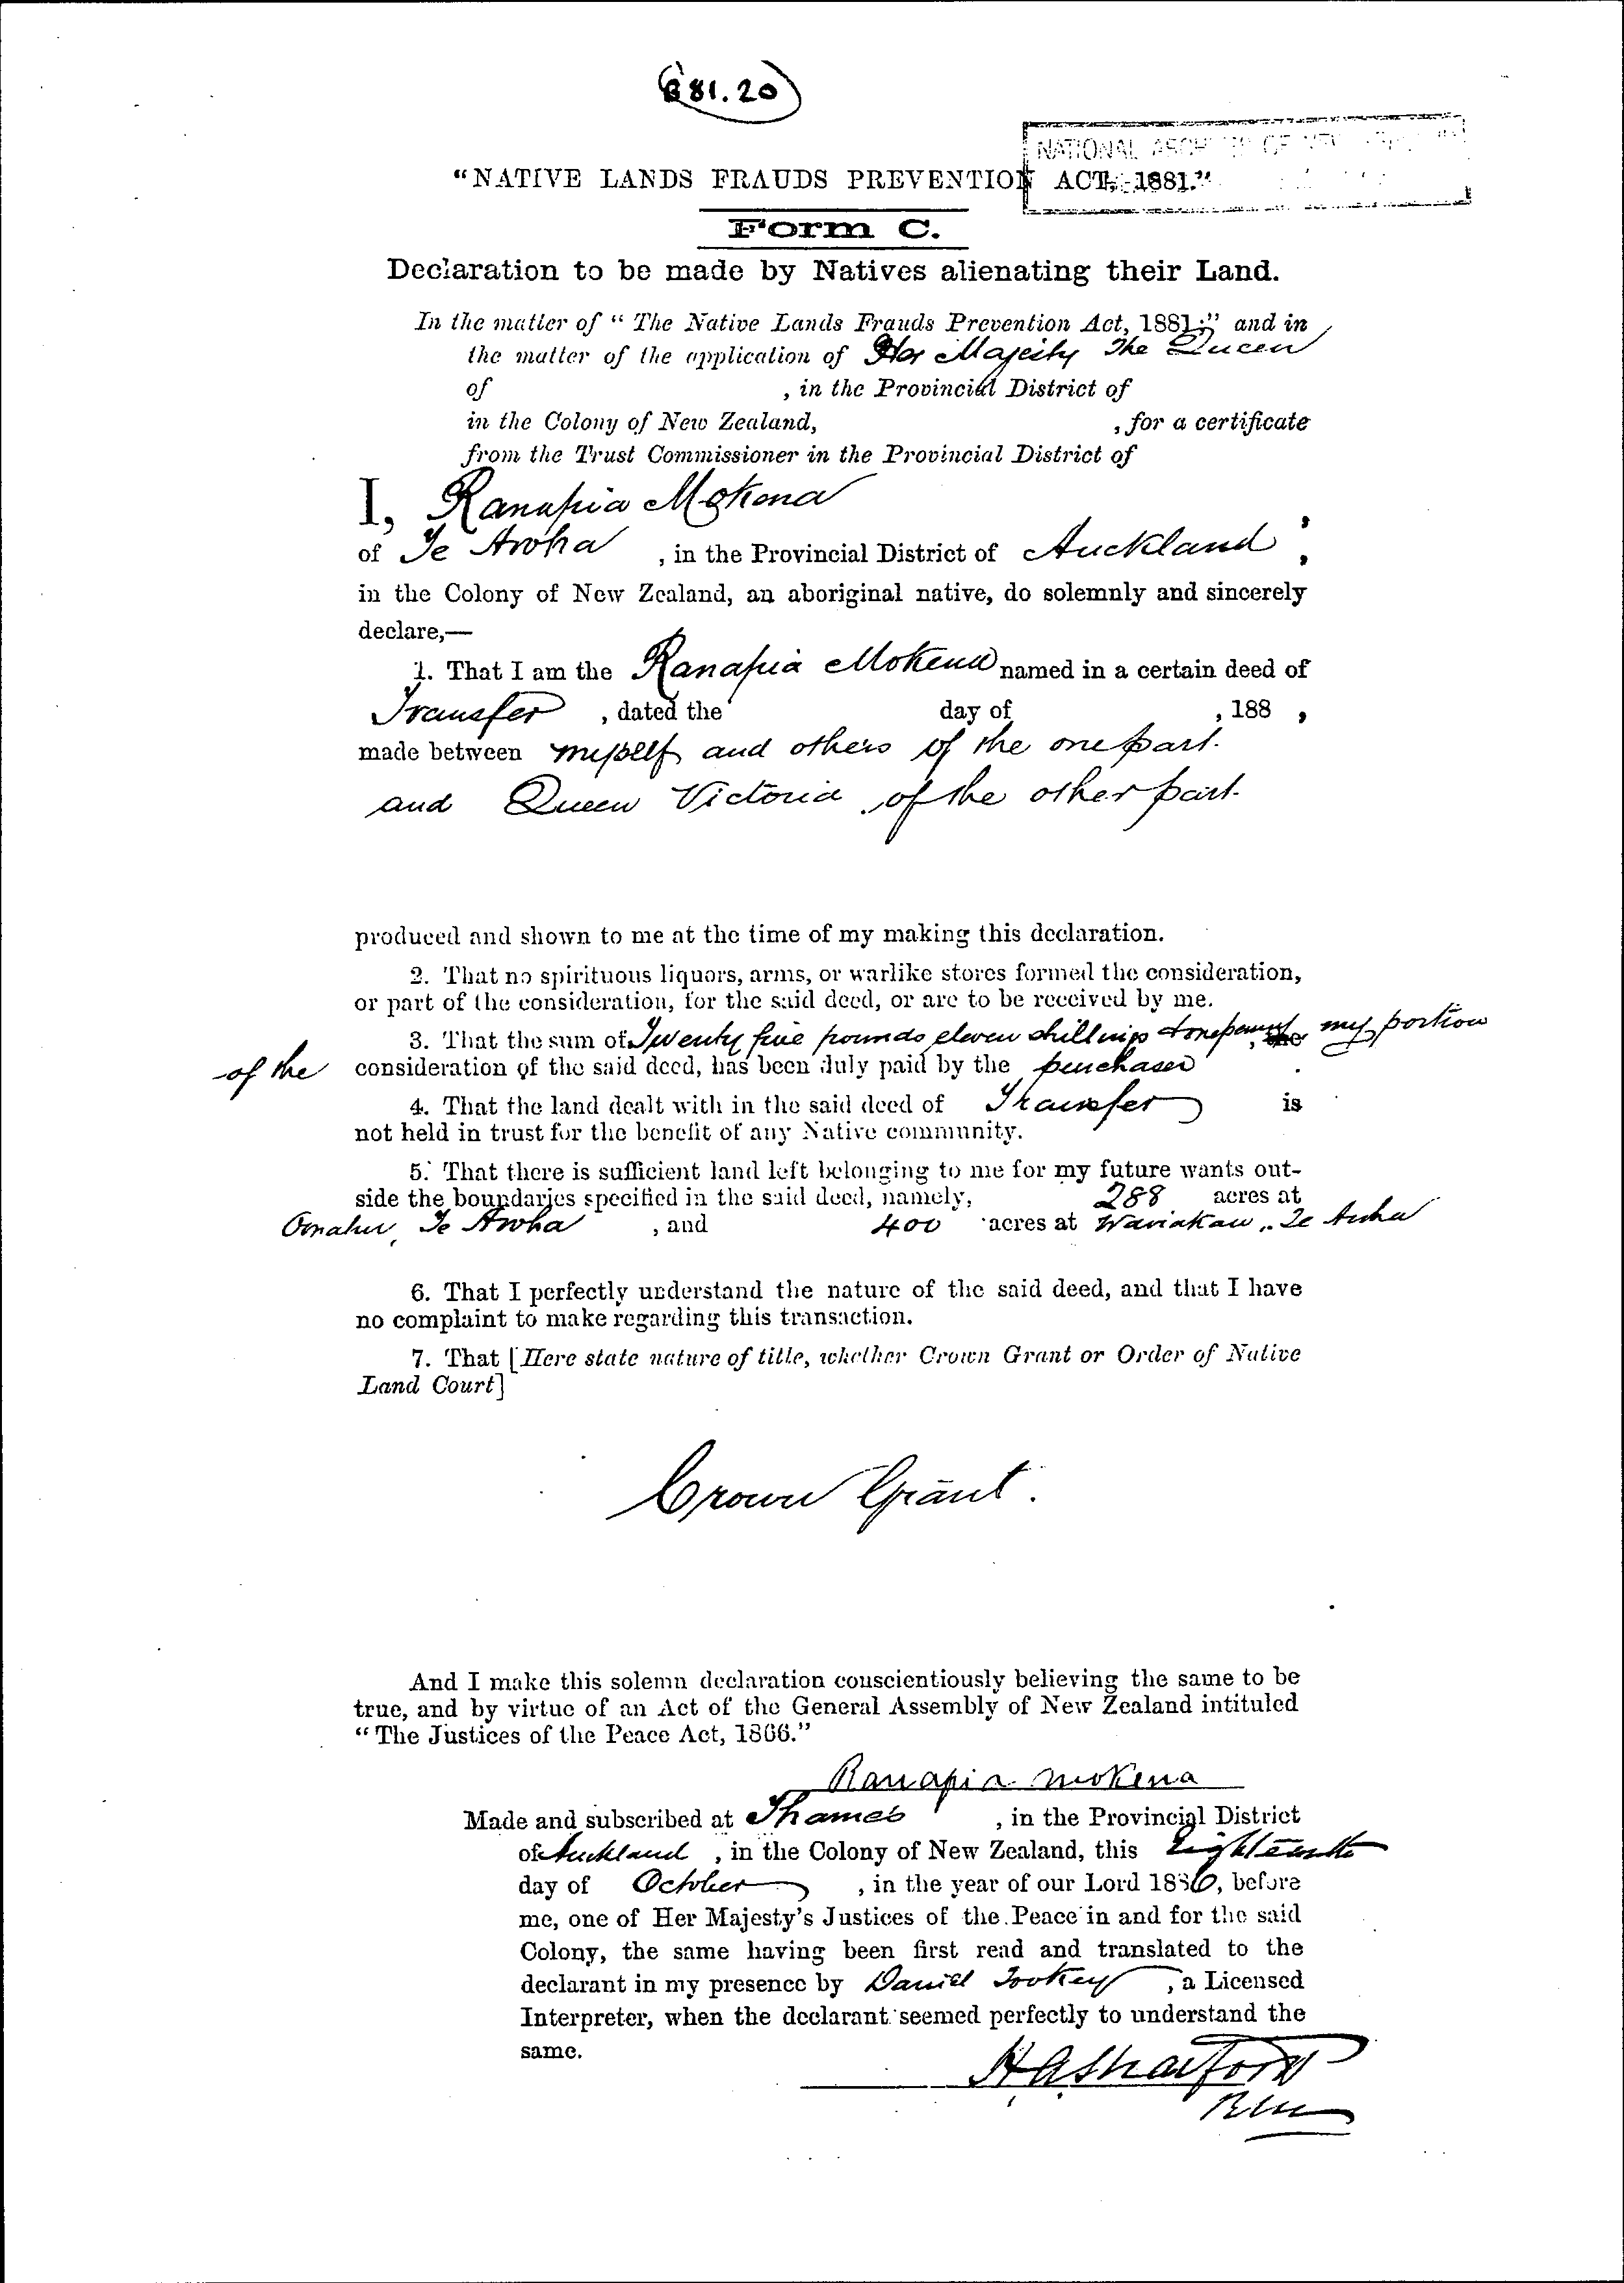 881.20
NATIONAL ARCHIVES OF NEW ZEALAND
"NATIVE LANDS FRAUDS PREVENTION ACT, 1881."
Form C.
Declaration to be made by Natives alienating their Land.
In the matter of "The Native Lands Frauds Prevention Act, 1881;" and in
the matter of the application of Her Majesty The Queen
of , in the Provincial District of
in the Colony of New Zealand, , for a certificate
from the Trust Commissioner in the Provincial District of
I, Ranapia Mokena
of Te Aroha , in the Provincial District of Auckland ,
in the Colony of New Zealand, an aboriginal native, do solemnly and sincerely
declare,—
1. That I am the Ranapia Mokena named in a certain deed of
Transfer , dated the day of , 188 ,
made between myself and others of the one part.
and Queen Victoria of the other part.
produced and shown to me at the time of my making this declaration.
2. That no spirituous liquors, arms, or warlike stores formed the consideration,
or part of the consideration, for the said deed, or are to be received by me.
3. That the sum of Twenty five pounds eleven shillings & onepenny, the my portion
of the consideration of the said deed, has been duly paid by the purchaser .
4. That the land dealt with in the said deed of Transfer is
not held in trust for the benefit of any Native community.
5. That there is sufficient land left belonging to me for my future wants out-
side the boundaries specified in the said deed, namely, 288 acres at
Omahu, Te Aroha , and 400 acres at Wairakau, Te Aroha
6. That I perfectly understand the nature of the said deed, and that I have
no complaint to make regarding this transaction.
7. That [Here state nature of title, whether Crown Grant or Order of Native
Land Court]
Crown Grant.
And I make this solemn declaration conscientiously believing the same to be
true, and by virtue of an Act of the General Assembly of New Zealand intituled
"The Justices of the Peace Act, 1866."
Ranapia Mokena
Made and subscribed at Thames , in the Provincial District
of Auckland , in the Colony of New Zealand, this Eighteenth
day of October , in the year of our Lord 1886, before
me, one of Her Majesty's Justices of the Peace in and for the said
Colony, the same having been first read and translated to the
declarant in my presence by Daniel Tookey , a Licensed
Interpreter, when the declarant seemed perfectly to understand the
same.
H A Stratford
RM